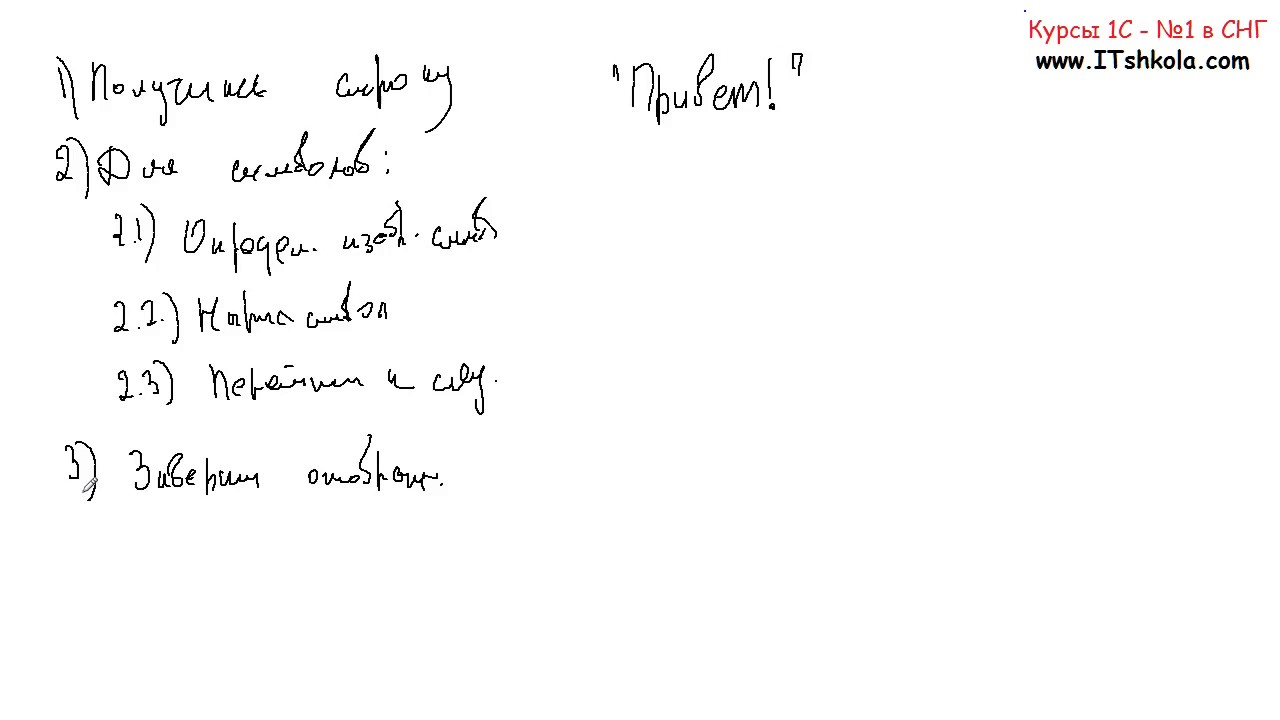 Курсы 1С - №1 в СНГ
www.ITshkola.com
1) Получить строку
"Привет!"
2) Для символов:
2.1) Определ. изобр. симв
2.2.) Нарис символ
2.3) Перейти к след.
3) Заверши отображ.